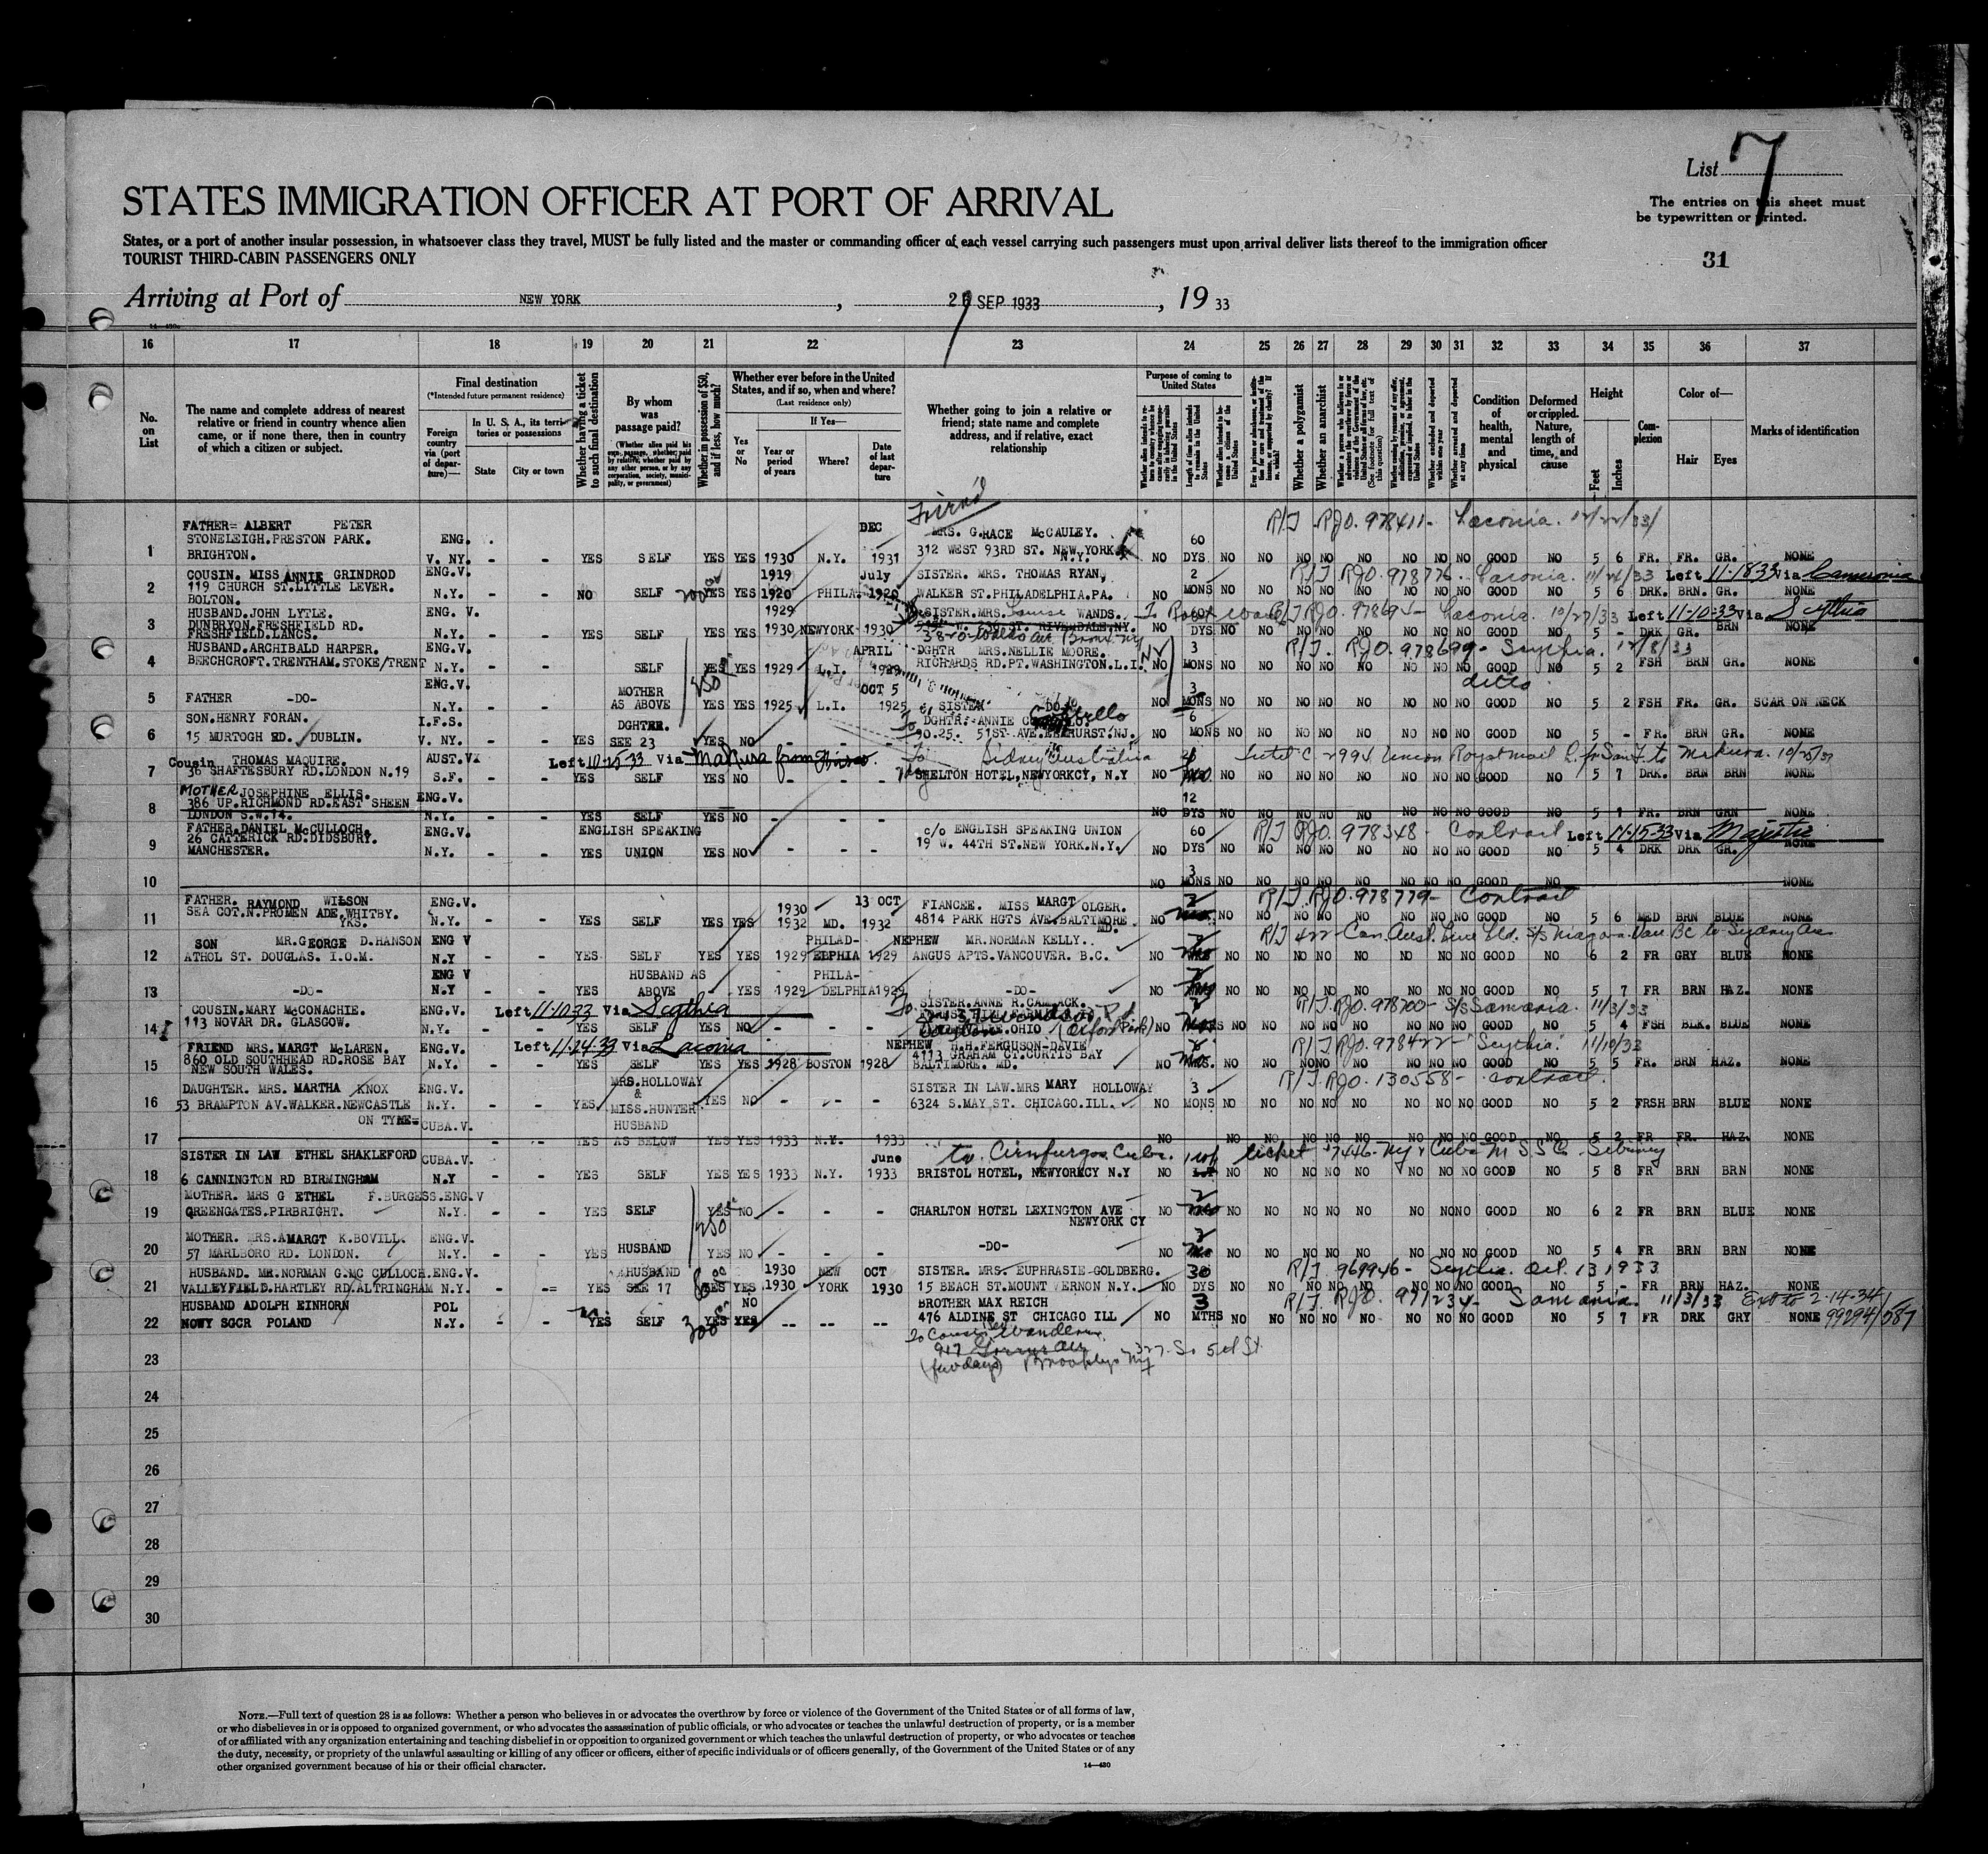 List 7
STATES IMMIGRATION OFFICER AT PORT OF ARRIVAL
The entries on this sheet must
be typewritten or printed.
States, or a port of another insular possession, in whatsoever class they travel, MUST be fully listed and the master or commanding officer of each vessel carrying such passengers must upon arrival deliver lists thereof to the immigration officer
TOURIST THIRD-CABIN PASSENGERS ONLY
31
Arriving at Port of NEW YORK, SEP 1933, 19 33
16 17 18 19 20 21 22 23 24 25 26 27 28 29 30 31 32 33 34 35 36 37
No. on List
The name and complete address of nearest relative or friend in country whence alien came, or if none there, then in country of which a citizen or subject.
Final destination
(*Intended future permanent residence)
Foreign country via (port of departure)—
In U. S. A., its territories or possessions
State
City or town
Whether having a ticket to such final destination
By whom was passage paid?
(Whether alien paid his own passage, whether paid by relative, whether paid by any other person, or by any corporation, society, municipality, or government)
Whether in possession of $50, and if less, how much?
Whether ever before in the United States, and if so, when and where?
(Last residence only)
Yes or No
If Yes—
Year or period of years
Where?
Date of last departure
Whether going to join a relative or friend; state name and complete address, and if relative, exact relationship
Purpose of coming to United States
Length of time alien intends to remain in the United States
Whether a polygamist
Whether an anarchist
Condition of health, mental and physical
Deformed or crippled. Nature, length of time, and cause
Height
Feet
Inches
Complexion
Color of—
Hair
Eyes
Marks of identification
Friend
FATHER= ALBERT PETER ENG. DEC MRS. GRACE McCAULEY. 60 R/T RJO. 978411- Laconia. 12/22/33
STONELEIGH.PRESTON PARK.
1 BRIGHTON. V. NY. - - YES SELF YES YES 1930 N.Y. 1931 312 WEST 93RD ST. NEW YORK N.Y. NO DYS NO NO NO NO NO NO NO NO GOOD NO 5 6 FR. FR. GR. NONE
COUSIN. MISS ANNIE GRINDROD ENG.V. 1919 July SISTER. MRS. THOMAS RYAN. 2 R/T RJO. 978776- Laconia. 11/24/33 Left 11-18-33 Via Cameronia
2 119 CHURCH ST.LITTLE LEVER. N.Y. - - NO SELF 200 YES YES 1920 PHILA. 1920 WALKER ST.PHILADELPHIA.PA. NO MONS NO NO NO NO NO NO NO NO GOOD NO 5 6 DRK. BRN. GR. NONE
BOLTON.
HUSBAND.JOHN LYTLE. ENG. V. 1929 SISTER.MRS. Louise WANDS. 60 R/T RJO. 978694- Laconia. 10/27/33 Left 11-10-33 Via Scythia
3 DUNBRYON.FRESHFIELD RD. N.Y. - - YES SELF YES YES 1930 NEWYORK 1930 RIVERDALE,NY. NO DYS NO NO NO NO NO NO NO NO GOOD NO 5 - DRK GR. BRN NONE
FRESHFIELD.LANCS. Bronx NY
HUSBAND.ARCHIBALD HARPER. ENG.V. APRIL DGHTR MRS.NELLIE MOORE. 3 R/T. RJO. 978699- Scythia. 12/8/33
4 BEECHCROFT.TRENTHAM.STOKE/TRENT N.Y. SELF YES YES 1929 L.I. 1929 RICHARDS RD.PT.WASHINGTON.L.I. NO MONS NO NO NO NO NO NO NO NO GOOD NO 5 2 FSH BRN GR. NONE
ENG.V. MOTHER 250 OCT 5 3 ditto
5 FATHER -DO- N.Y. AS ABOVE YES YES 1925 L.I. 1925 SISTER -DO- MONS NO NO NO NO NO NO NO NO GOOD NO 5 2 FSH FR. GR. SCAR ON NECK
SON.HENRY FORAN. I.F.S. DGHTER. DGHTR. ANNIE Costello 6
6 15 MURTOGH RD. DUBLIN. V. NY. - - YES SEE 23 YES NO - - - 90.25. 51ST.AVE.ELMHURST.NJ. NO MONS NO NO NO NO NO NO NO NO GOOD NO 5 - FR. BRN GR. NONE
Cousin THOMAS MAQUIRE. AUST.V. Left 10-25-33 Via Makura from Frisco. To Sidney Australia C 2994 Union Royal Mail L. fr San F. to Makura. 10/25/33
7 36 SHAFTESBURY RD.LONDON N.19 S.F. - - YES SELF YES NO - - - SHELTON HOTEL,NEWYORKCY, N.Y NO NO NO NO NO NO NO NO NO GOOD NO 5 7 DRK. BRN BRN NONE
MOTHER JOSEPHINE ELLIS. ENG.V. 12
8 386 UP.RICHMOND RD.EAST SHEEN N.Y. YES SELF YES NO NO DYS NO NO NO NO NO NO NO NO GOOD NO 5 1 FR. BRN GRN NONE
LONDON S.W.14.
FATHER.DANIEL McCULLOCH. ENG.V. ENGLISH SPEAKING c/o ENGLISH SPEAKING UNION 60 R/T RJO. 978348- Contract Left 11-15-33 Via Majestic
9 26 CATTERICK RD.DIDSBURY. N.Y. - - YES UNION YES NO - - - 19 W. 44TH ST.NEW YORK.N.Y. NO DYS NO NO NO NO NO NO NO NO GOOD NO 5 4 DRK DRK GR. NONE
MANCHESTER.
10 3 NO MONS NO NO NO NO NO NO NO NO GOOD NO NONE
FATHER. RAYMOND WILSON ENG.V. 1930 13 OCT FIANCEE. MISS MARGT OLGER. 2 R/T. RJO. 978779- Contract
11 SEA COT.N.PROMEN ADE.WHITBY. YKS. N.Y. - - YES SELF YES YES 1932 MD. 1932 4814 PARK HGTS AVE.BALTIMORE. MD. NO NO NO NO NO NO NO NO NO GOOD NO 5 6 MED BRN BLUE NONE
SON MR.GEORGE D.HANSON ENG V PHILAD- NEPHEW MR.NORMAN KELLY. 2 R/T 422- Can. Aust. Line Ltd. S/S Niagara. Van BC to Sydney Aus
12 ATHOL ST. DOUGLAS. I.O.M. N.Y - - YES SELF YES YES 1929 ELPHIA 1929 ANGUS APTS.VANCOUVER. B.C. NO NO NO NO NO NO NO NO NO GOOD NO 6 2 FR GRY BLUE NONE
ENG V HUSBAND AS PHILA- 2
13 -DO- N.Y - - YES ABOVE - YES 1929 DELPHIA 1929 -DO- NO NO NO NO NO NO NO NO NO GOOD NO 5 7 FR BRN HAZ. NONE
COUSIN.MARY McCONACHIE. ENG.V. Left 11-10-33 Via Scythia SISTER.ANNE R.CAMMACK. 2 R/T. RJO. 978700- S/S Samaria. 11/3/33
14 113 NOVAR DR. GLASGOW. N.Y. - - YES SELF YES NO - - - OHIO NO NO NO NO NO NO NO NO NO GOOD NO 5 4 FSH BLK. BLUE NONE
FRIEND MRS.MARGT McLAREN. ENG.V. Left 11-24-33 Via Laconia NEPHEW H.H.FERGUSON-DAVIE R/T. RJO. 978422- Scythia. 11/10/33
15 860 OLD SOUTHHEAD RD.ROSE BAY N.Y. - - YES SELF YES YES 1928 BOSTON 1928 4113 GRAHAM CT.CURTIS BAY NO NO NO NO NO NO NO NO NO GOOD NO 5 5 FR. BRN HAZ. NONE
NEW SOUTH WALES. BALTIMORE. MD.
DAUGHTER. MRS. MARTHA KNOX ENG.V. MRS.HOLLOWAY SISTER IN LAW.MRS MARY HOLLOWAY 3 R/T. RJO. 130558- contract.
16 53 BRAMPTON AV.WALKER.NEWCASTLE N.Y. - - YES & MISS.HUNTER YES NO - - - 6324 S.MAY ST. CHICAGO.ILL. NO MONS NO NO NO NO NO NO NO NO GOOD NO 5 2 FRSH BRN BLUE NONE
ON TYNE= CUBA.V. HUSBAND
17 - - YES AS BELOW YES YES 1933 N.Y. 1933 NO NO NO NO NO NO NO NO NO GOOD NO 5 2 FR FR. HAZ. NONE
SISTER IN LAW ETHEL SHAKLEFORD CUBA.V. June to Cienfuegos Cuba. ticket 7446. NY & Cuba M S S Co Siboney
18 6 CANNINGTON RD BIRMINGHAM N.Y - - YES SELF YES YES 1933 N.Y. 1933 BRISTOL HOTEL, NEWYORKCY N.Y NO NO NO NO NO NO NO NO NO GOOD NO 5 8 FR BRN BRN NONE
MOTHER. MRS G ETHEL F.BURGESS.ENG.V 2
19 GREENGATES.PIRBRIGHT. N.Y. - - YES SELF 250 YES NO - - - CHARLTON HOTEL LEXINGTON AVE NO NO NO NO NO NO NO NO NO GOOD NO 6 2 FR BRN BLUE NONE
NEWYORK CY
MOTHER. MRS.A MARGT K.BOVILL. ENG.V. 2
20 57 MARLBORO RD. LONDON. N.Y. - - YES HUSBAND YES NO - - - -DO- NO NO NO NO NO NO NO NO NO GOOD NO 5 4 FR BRN BRN NONE
HUSBAND. MR.NORMAN G.MC CULLOCH.ENG.V. HUSBAND 1930 NEW OCT SISTER. MRS. EUPHRASIE-GOLDBERG. 30 R/T. 969946- Scythia. Oct. 13 1933
21 VALLEYFIELD.HARTLEY RD.ALTRINGHAM N.Y. - -= YES SEE 17 YES YES 1930 YORK 1930 15 BEACH ST.MOUNT VERNON N.Y. NO DYS NO NO NO NO NO NO NO NO GOOD NO 5 - FR BRN HAZ. NONE
HUSBAND ADOLPH EINHORN POL NO BROTHER MAX REICH 3 R/T. RJO. 971234- Samaria. 11/3/33 Ext to 2-14-34
22 NOWY SGCR POLAND N.Y. - - YES SELF 300 YES YES -- -- -- 476 ALDINE ST CHICAGO ILL NO MTHS NO NO NO NO NO NO NO NO GOOD NO 5 7 FR DRK GRY NONE 99294/587
To Cousin
917
23 (few days) Brooklyn NY 327 So 5th St.
24
25
26
27
28
29
30
NOTE.—Full text of question 28 is as follows: Whether a person who believes in or advocates the overthrow by force or violence of the Government of the United States or of all forms of law,
or who disbelieves in or is opposed to organized government, or who advocates the assassination of public officials, or who advocates or teaches the unlawful destruction of property, or is a member
of or affiliated with any organization entertaining and teaching disbelief in or opposition to organized government or which teaches the unlawful destruction of property, or who advocates or teaches
the duty, necessity, or propriety of the unlawful assaulting or killing of any officer or officers, either of specific individuals or of officers generally, of the Government of the United States or of any
other organized government because of his or their official character.
14—430